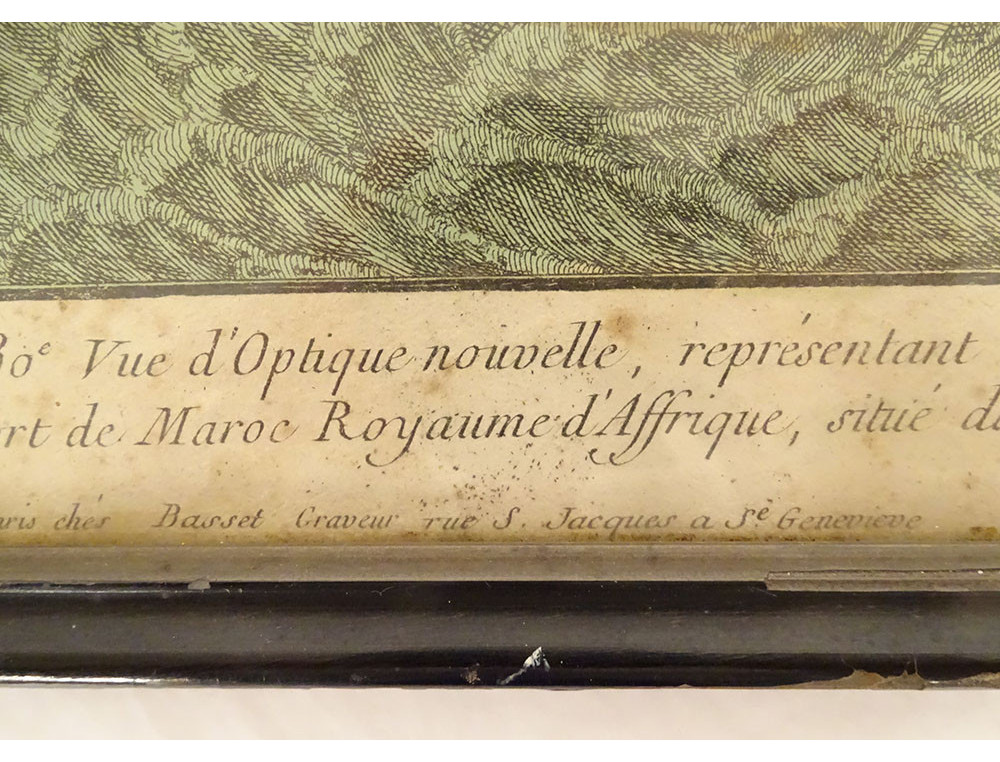 80e Vue d'Optique nouvelle, représentant
rt de Maroc Royaume d'Affrique, situé d
ris chés Basset Graveur rue S. Jacques a Ste Genevieve